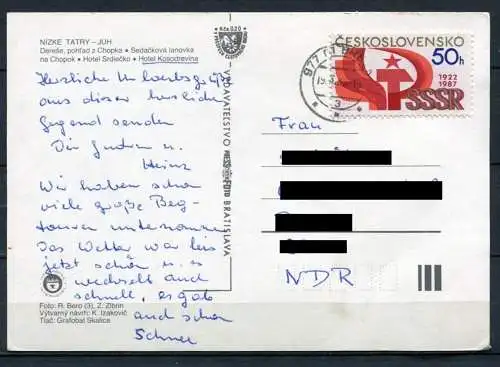 NÍZKE TATRY – JUH
Dereše, pohľad z Chopka • Sedačková lanovka
na Chopok • Hotel Srdiečko • Hotel Kosodrevina
Herzliche Urlaubsgrüße
aus dieser herrlichen
Gegend senden
und
Heinz
Wir haben schon
viele große Berg-
touren unternommen
Das Wetter war bis
jetzt schön u. es
wechselt auch
schnell, es gab
auch schon
Schnee
Foto: R. Bero (3), Z. Zibrin
Výtvarný návrh: K. Izakovič
Tlač: Grafobal Skalica
VYDAVATEĽSTVO
BRATISLAVA
ČESKOSLOVENSKO
50h
1922
1987
SSSR
977
3
Frau
NDR